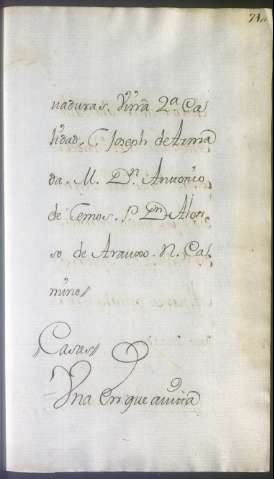 71
naduras. tierra 2ª Ca
lidad. L. Joseph de Arma
da. M. Dn. Antonio
de Lemos. P. Dn. Alon
so de Araujo. N. Ca
mino
Casas
Una en que avita